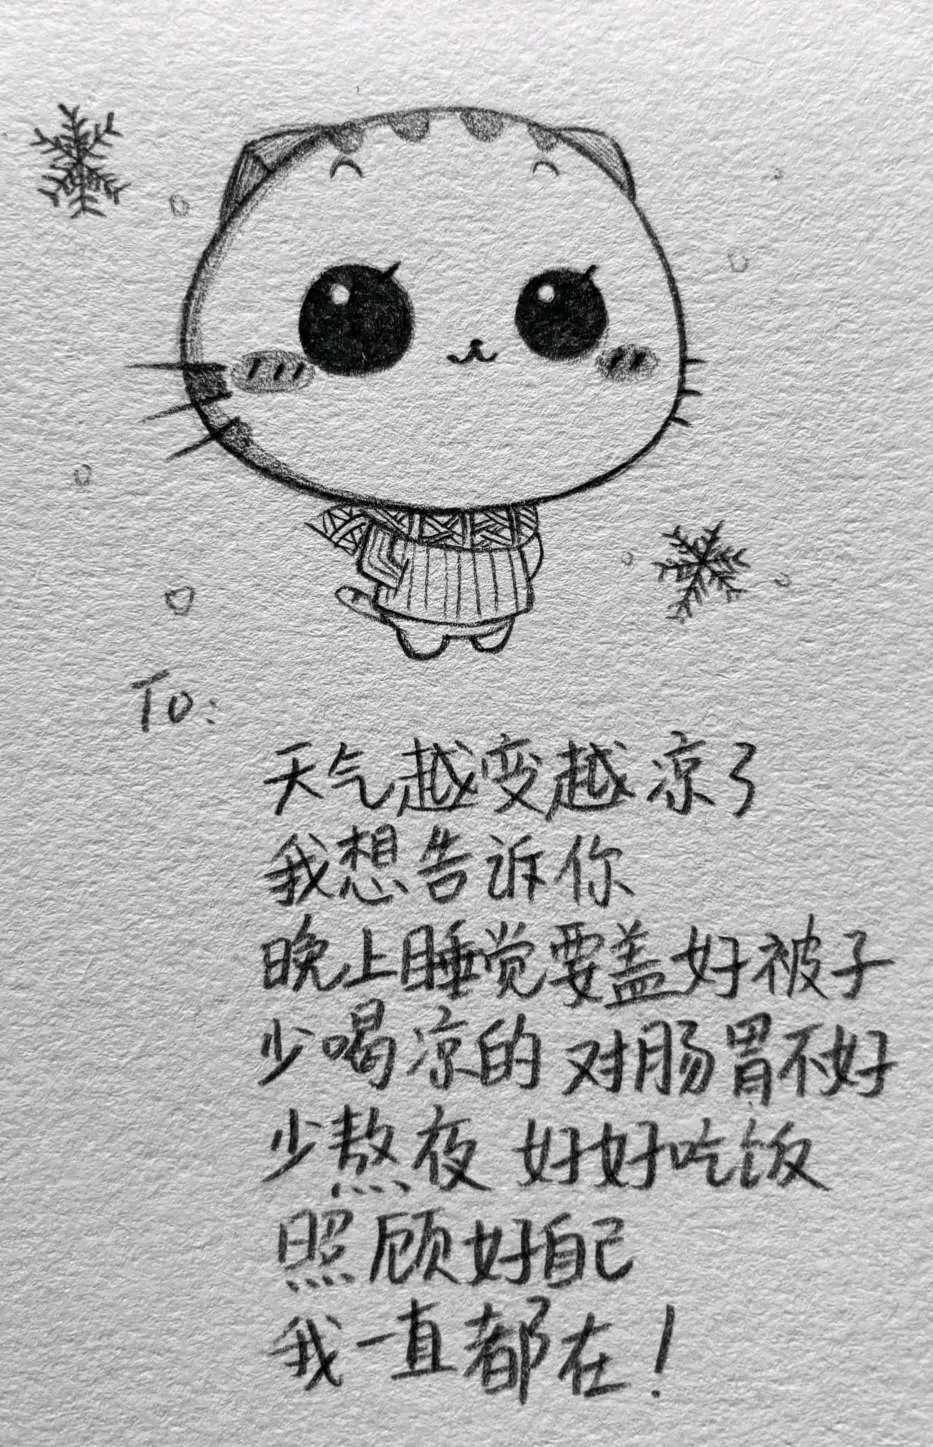 To:
天气越变越凉了
我想告诉你
晚上睡觉要盖好被子
少喝凉的 对肠胃不好
少熬夜 好好吃饭
照顾好自己
我一直都在!